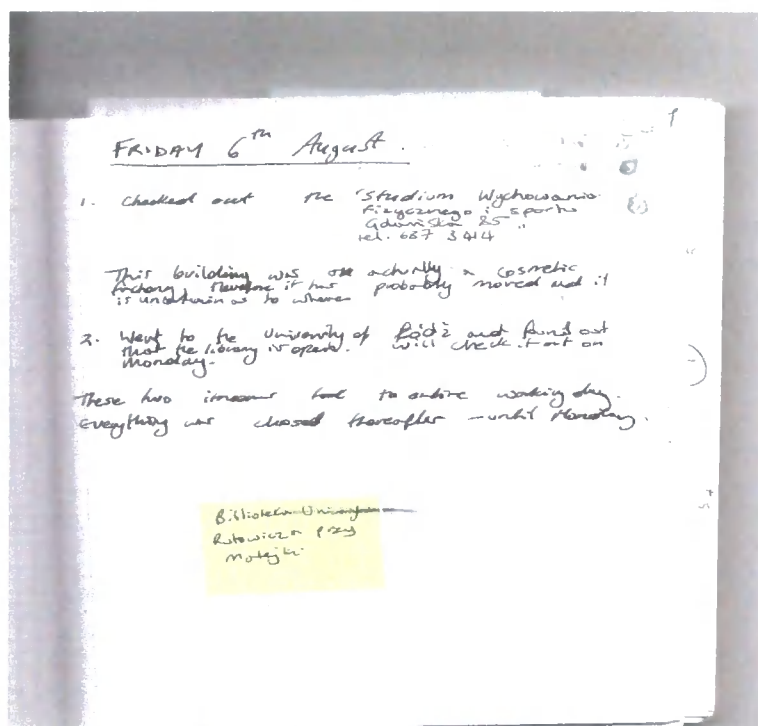 1
FRIDAY 6th August.
1. Checked out the "Studium Wychowania
Fizycznego i sportu
Gdańska 85"
tel. 637 3414
This building was actually a cosmetic
factory, therefore it has probably moved and it
is uncertain as to where
2. Went to the University of Łódź and found out
that the library is open. will check it out on
Monday.
These two took entire working day.
Everything was closed thereafter - until Monday.
Biblioteka
przy
Matejki